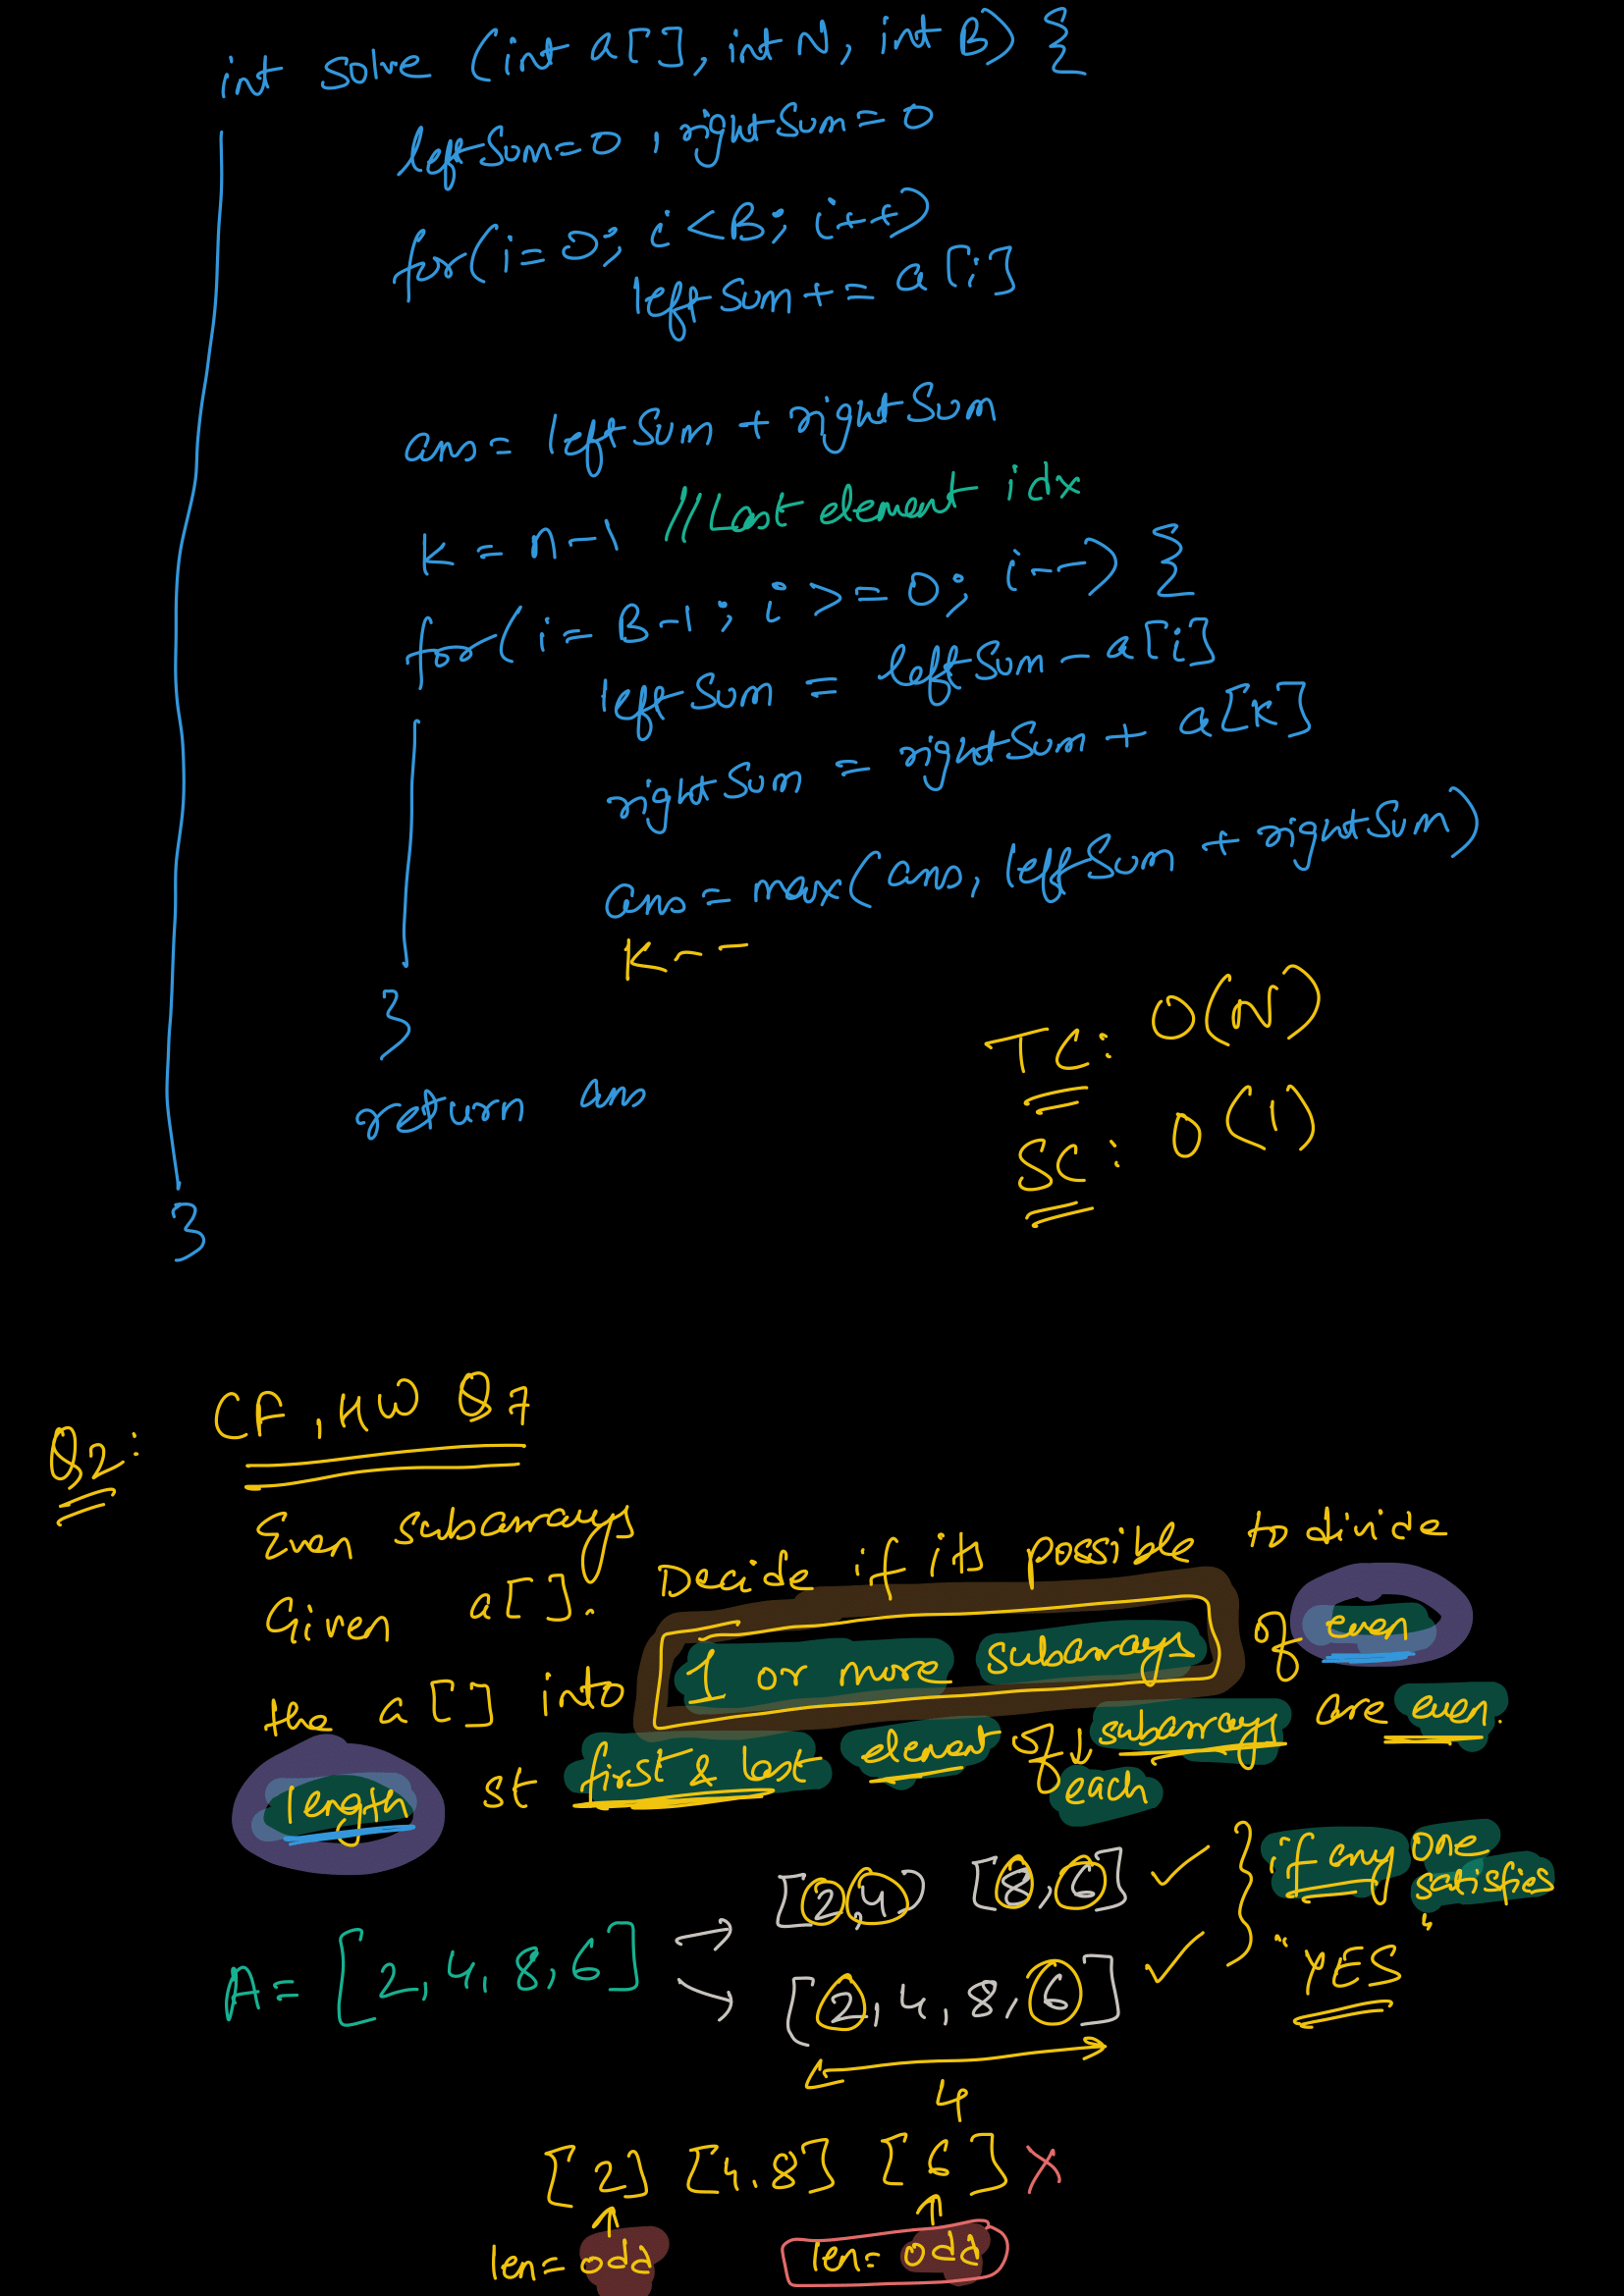 int solve (int a[], int N, int B) {
leftSum=0 , rightSum=0
for(i=0; i<B; i++)
leftSum+= a[i]
ans= leftSum + rightSum
k = n-1 //Last element idx
for(i=B-1; i>=0; i--) {
leftSum = leftSum - a[i]
rightSum = rightSum + a[k]
ans = max(ans, leftSum + rightSum)
k--
}
TC: O(N)
return ans
SC: O(1)
}
Q2: CF, HW Q7
Even subarrays
Given a[]. Decide if its possible to divide
the a[] into 1 or more subarrays of even
length st first & last element of ↓ subarrays are even.
each
[2,4] [8,6] ✓ } if any one
satisfies
A= [2,4,8,6] → → [2,4,8,6] ✓ "YES"
4
[2] [4,8] [6] x
↑ ↑
len= odd len= odd